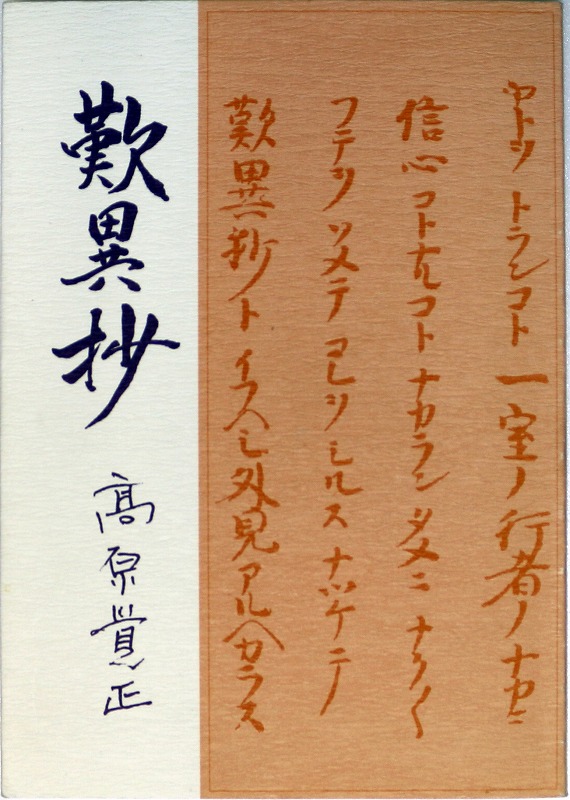 ヤトヲ トランコト 一室ノ行者ノナカニ
信心コトナルコト ナカランタメニ ナク〱
フテヲ ソメテ コレヲ シルス ナツケテ
歎異抄ト イフヘシ外見アルヘカラス
歎異抄
高原覚正